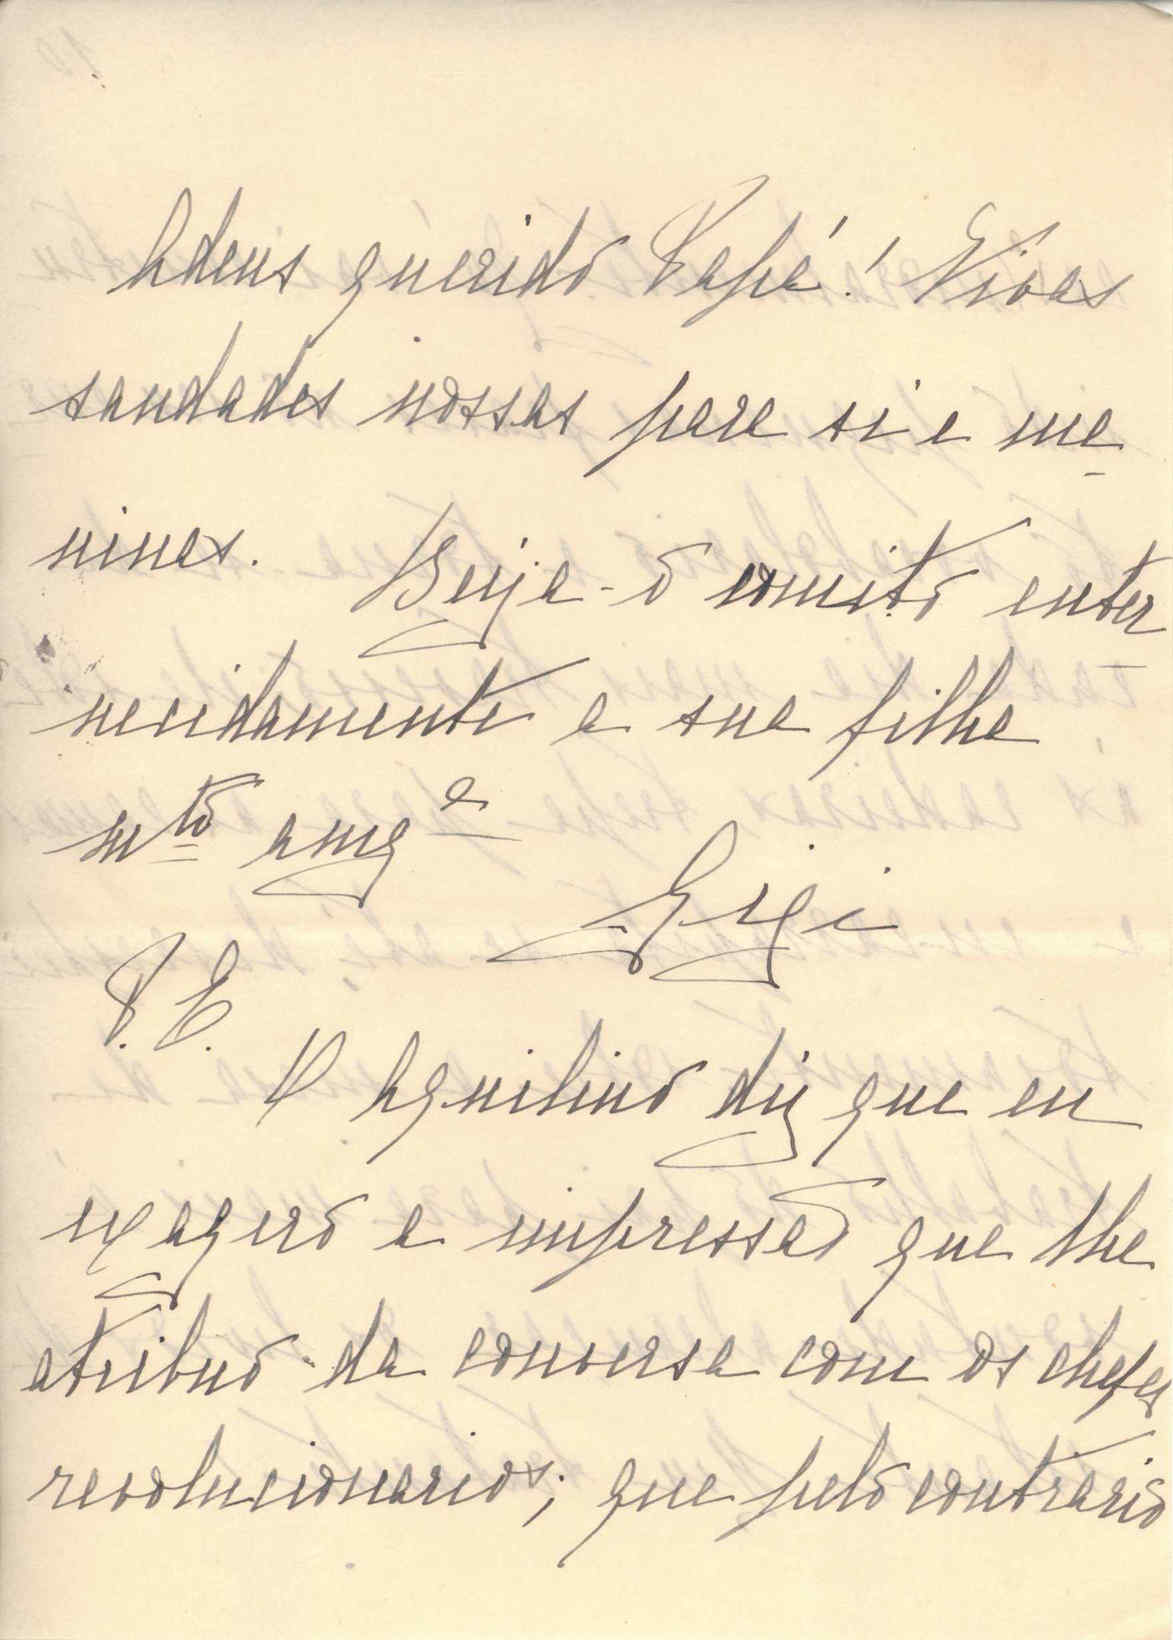 Adeus querido Papá! Vivas
saudades nossas para si e me
ninas. Beija-o comito enter
necidamente a sua filha
mto amga
Gigi
P.E.
O Aquilino diz que eu
exagero a impressão que lhe
atribuo da conversa com os chefes
revolucionarios; que pelo contrario